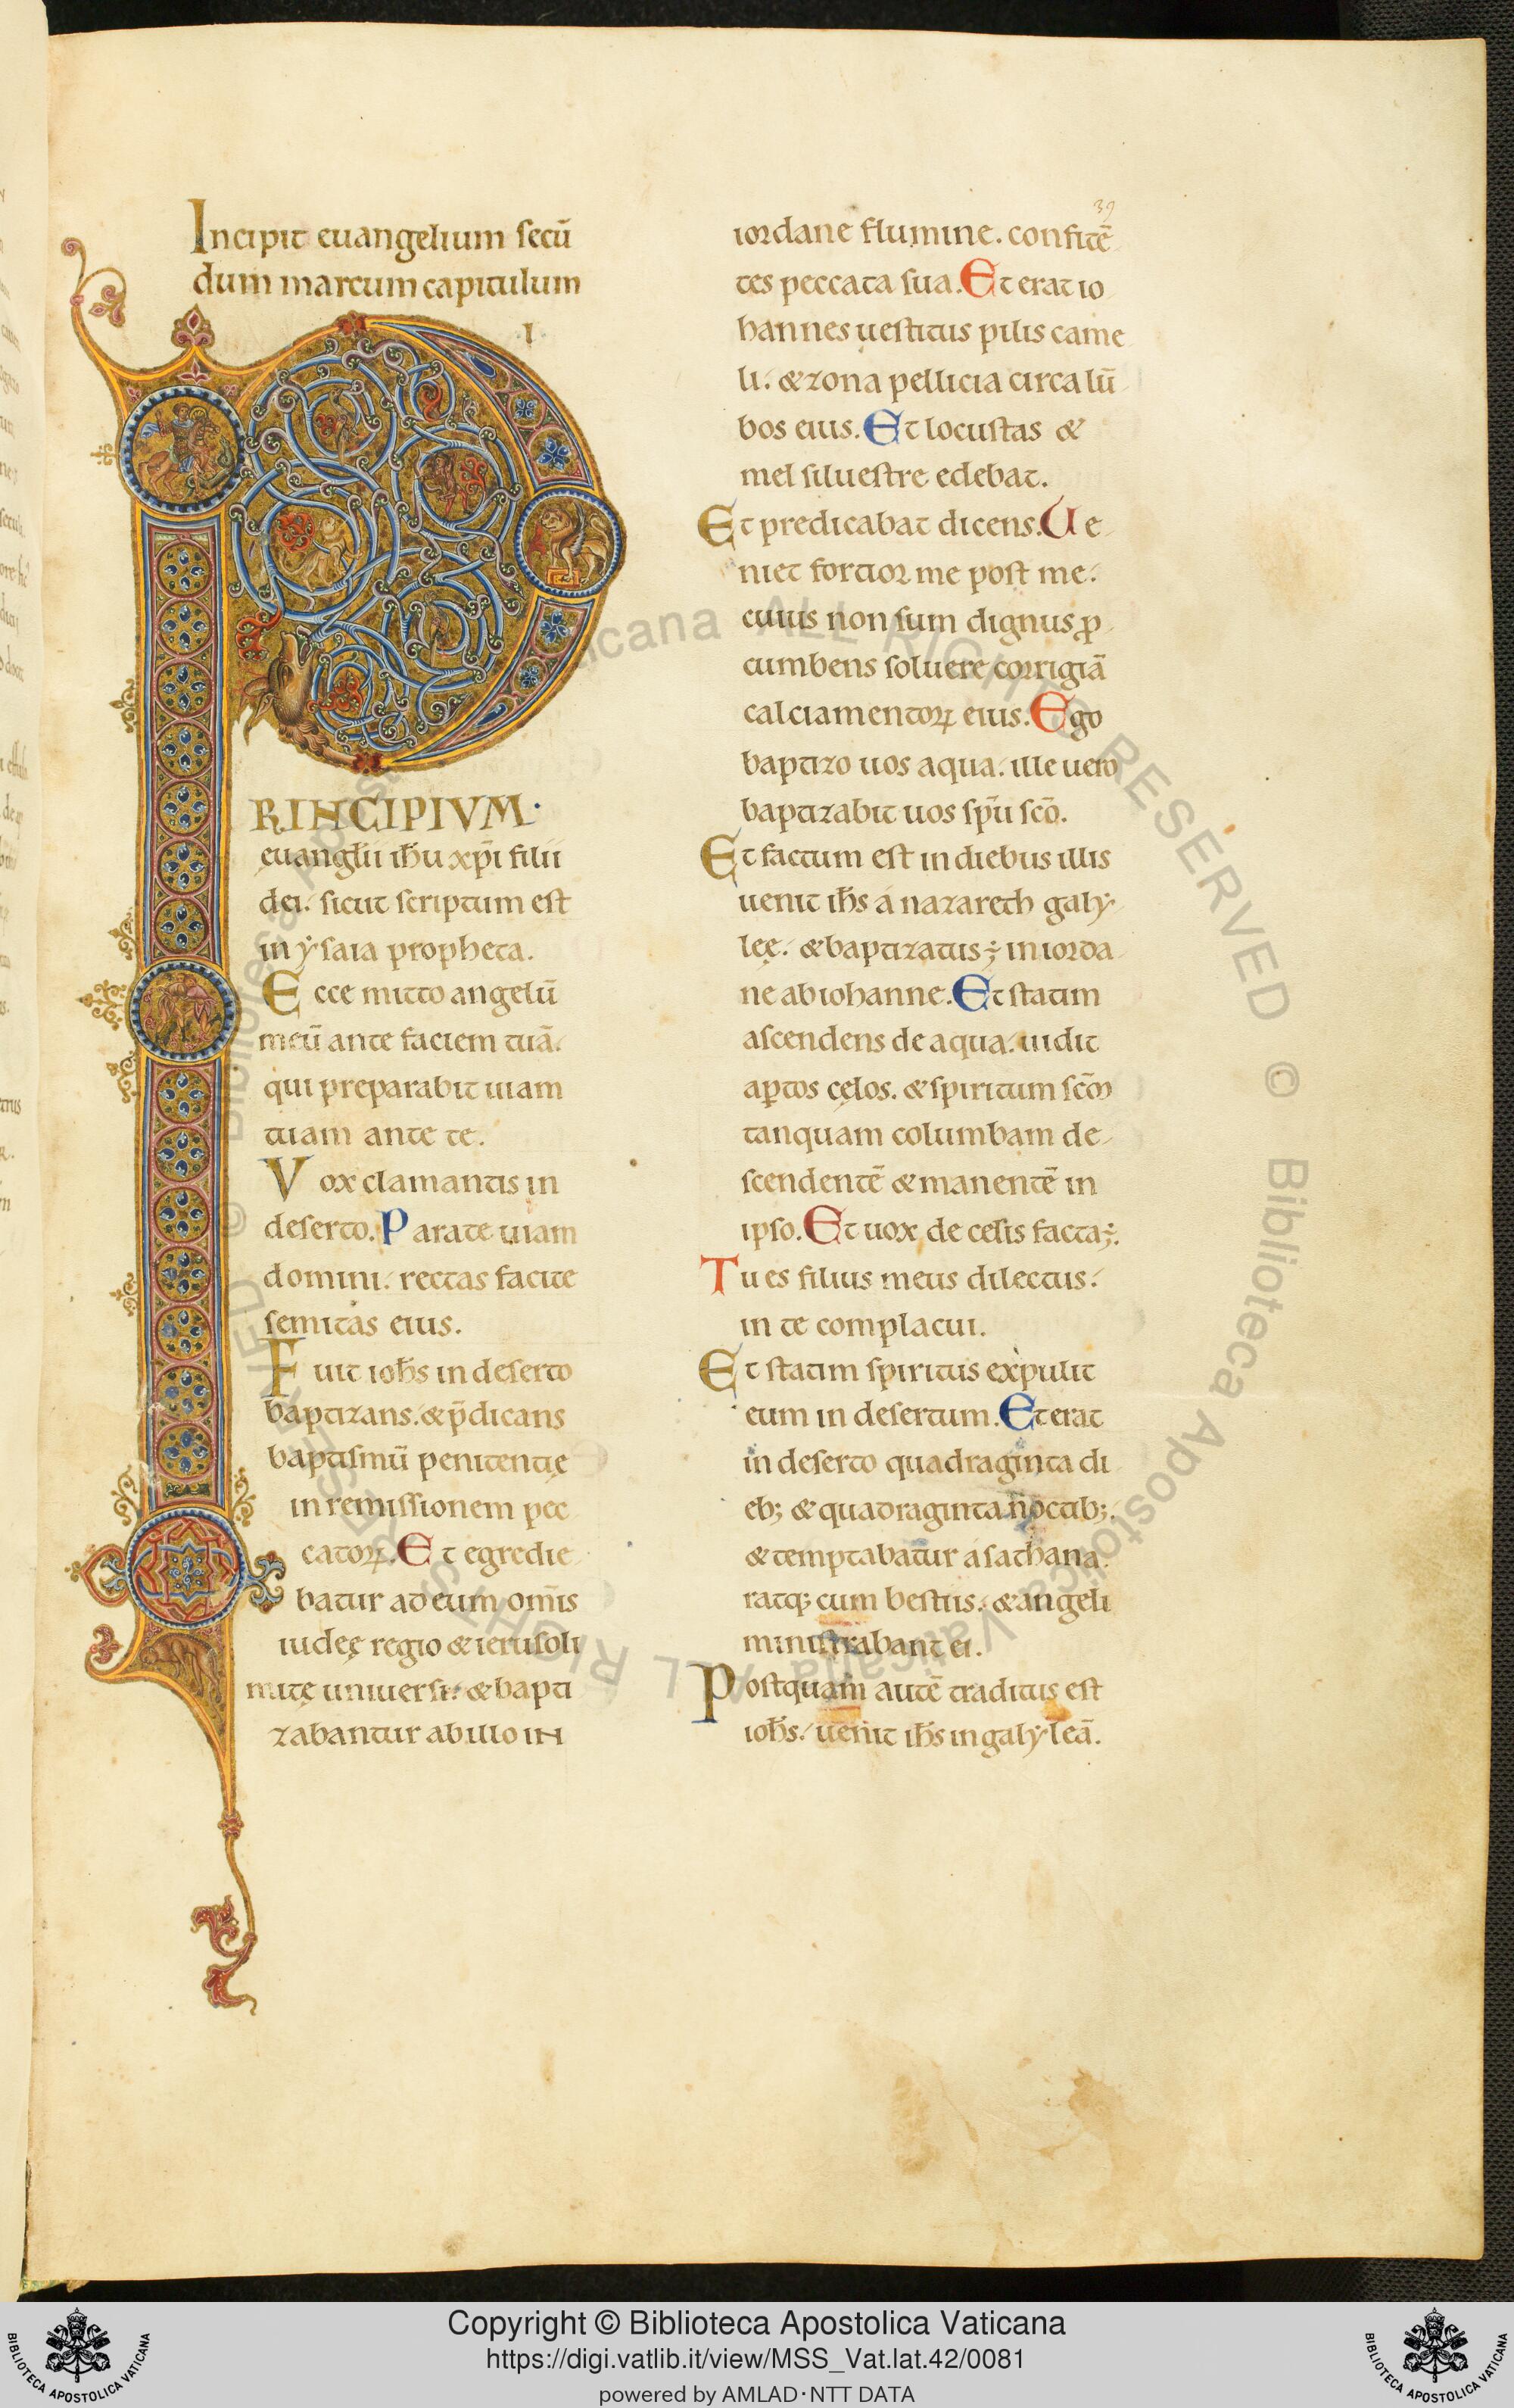 39
Incipit euangelium secū
dum marcum capitulum
·I·
P
RINCIPIVM·
euangl̄ii ih̄u xp̄i filii
dei. sicut scriptum est
in ẏsaia propheta.
Ecce mitto angelū
meū ante faciem tuā.
qui preparabit uiam
tuam ante te.
Vox clamantis in
deserto. Parate uiam
domini. rectas facite
semitas eius.
Fuit ioh̄s in deserto
baptizans. & p̄dicans
baptismū penitentię
in remissionem pec
catoꝝ. Et egredie
batur ad eum om̄is
iudeę regio & ierusoli
mitę uniuersi. & bapti
zabantur ab illo in
iordane flumine. confitē
tes peccata sua. Et erat io
hannes uestitus pilis came
li. & zona pellicia circa lū
bos eius. Et locustas &
mel siluestre edebat.
Et predicabat dicens. Ue
niet fortior me post me.
cuius non sum dignus ꝓ
cumbens soluere corrigiā
calciamentoꝝ eius. Ego
baptizo uos aqua. ille uero
baptizabit uos sp̄u scō.
Et factum est in diebus illis
uenit ih̄s a nazareth galẏ
leę. & baptizatus ÷ in iorda
ne ab iohanne. Et statim
ascendens de aqua. uidit
aꝑtos cęlos. & spiritum scm̄
tanquam columbam de
scendentē & manentē in
ipso. Et uox de celis facta ÷.
Tu es filius meus dilectus.
in te complacui.
Et statim spiritus expulit
eum in desertum. Et erat
in deserto quadraginta di
eb; & quadraginta noctib;.
& temptabatur a sathana.
ratq; cum bestiis. & angeli
ministrabant ei.
Postquam autē traditus est
ioh̄s. uenit ih̄s in galẏleā.
© Biblioteca Apostolica Vaticana ALL RIGHTS RESERVED © Biblioteca Apostolica Vaticana ALL RIGHTS RESERVED
Copyright © Biblioteca Apostolica Vaticana
https://digi.vatlib.it/view/MSS_Vat.lat.42/0081
powered by AMLAD·NTT DATA
BIBLIOTECA APOSTOLICA VATICANA
BIBLIOTECA APOSTOLICA VATICANA